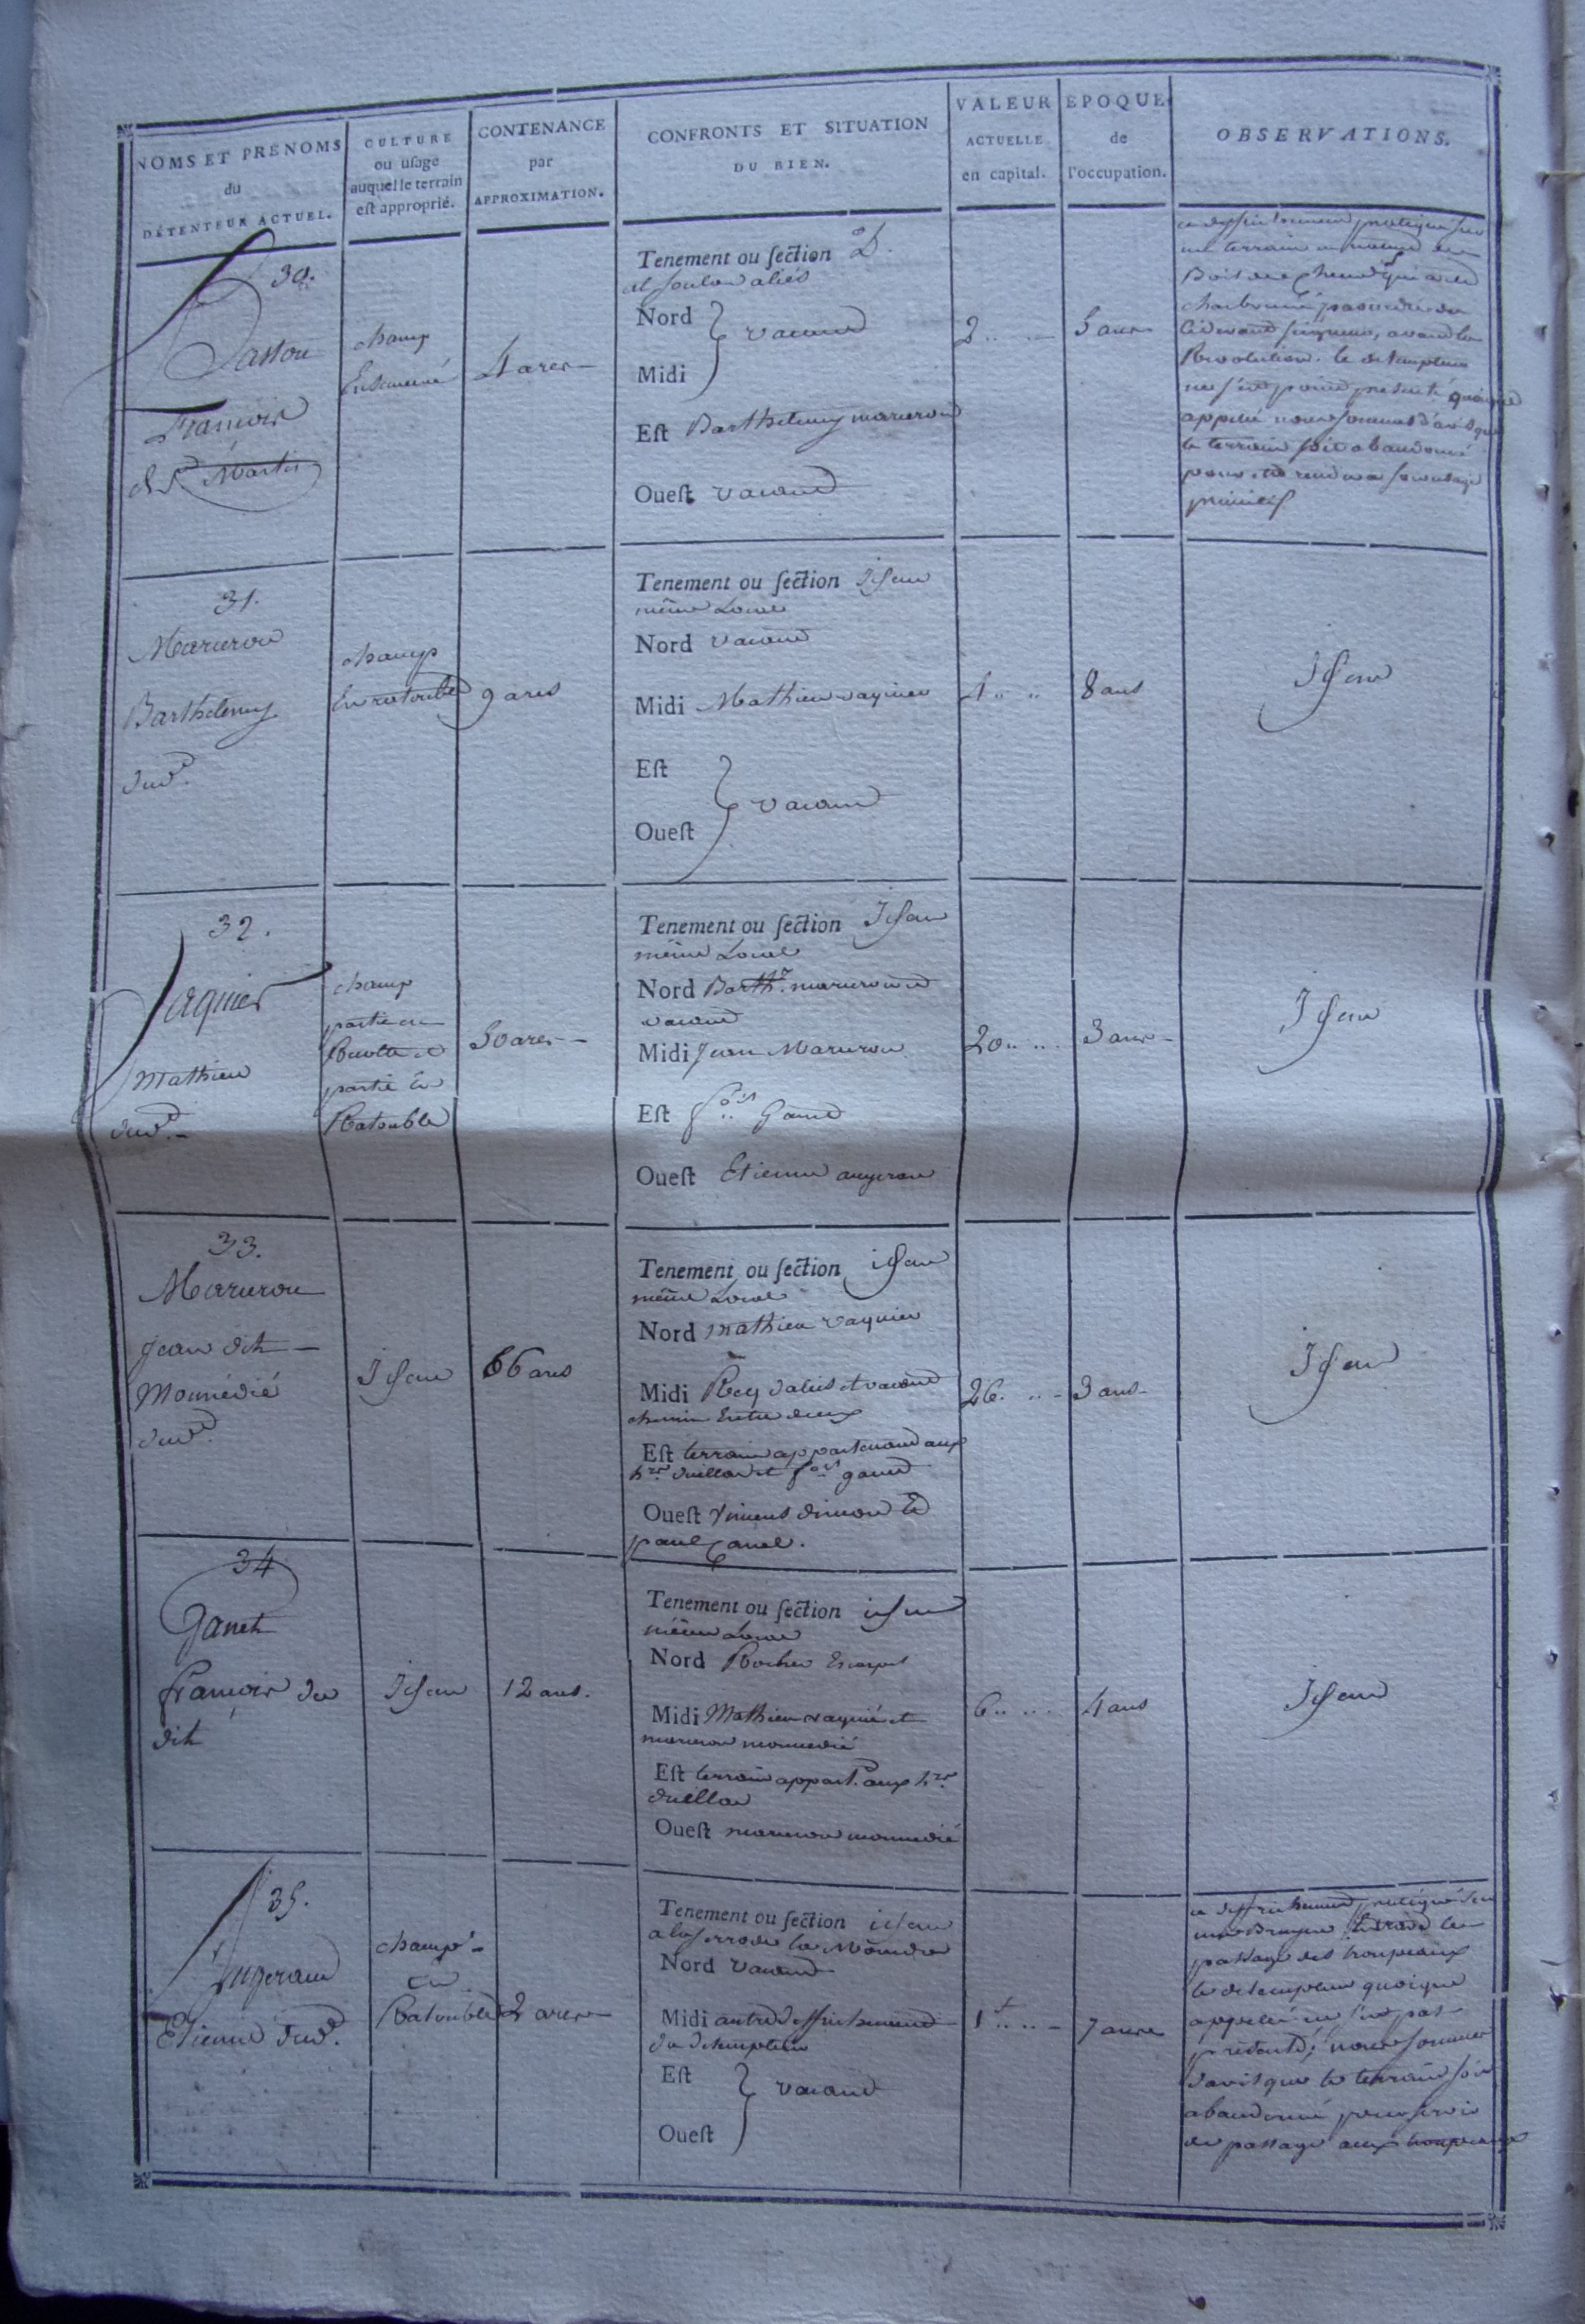 NOMS ET PRENOMS
du
DÉTENTEUR ACTUEL.
CULTURE
ou uſage
auquel le terrain
eſt approprié.
CONTENANCE
par
APPROXIMATION.
CONFRONTS ET SITUATION
DU BIEN.
VALEUR
ACTUELLE
en capital.
EPOQUE
de
l'occupation.
OBSERVATIONS.
30.
François
de St Martin
champ
Ensemencé
4 ares
Tenement ou ſection D.
Nord
vacand
Midi
Eſt Barthelemy
Oueſt vacand
2
5 ans
ce deffrichement pratiqué sur
un terrain en nature de
Bois de chene qui a été
ci devant seigneur, avant la
Revolution. le detempteur
ne s'est point presenté quoique
appellé nous sommes d'avis que
le terrain soit abandonné
pour etre rendu a son usage
primitif
31.
Barthelemy
Jud.
champ
En ratouble
9 ares
Tenement ou ſection Idem
même Local
Nord vacand
Midi Mathieu vaquier
Eſt
vacand
Oueſt
4
8 ans
Idem
32.
Vaquier
Mathieu
Jud.
champ
partie en
Recolte et
partie en
Ratouble
50 ares
Tenement ou ſection Idem
même Local
Nord Barth.
vacand
Midi Jean
Eſt
Oueſt Etienne augeraud
20
3 ans
Idem
33.
Jean dit
Mounédié
Jud.
Idem
66 ares
Tenement ou ſection idem
même Local
Nord mathieu vaquier
Midi et vacand
chemin Entre deux
Eſt terrain appartenand aux
Oueſt
paul
26.
3 ans
Idem
34
Ganet
françois du
dit
Idem
12 ares.
Tenement ou ſection idem
même Local
Nord Rocher Escarpé
Midi Mathieu vaquié et
mounedié
Eſt terrain appart. aux
Oueſt mounedié
6
4 ans
Idem
35.
Augeraud
Etienne Jud.
champ
en
Ratouble
2 ares
Tenement ou ſection idem
Nord vacand
Midi autre deffrichement
du detempteur
Eſt
vacand
Oueſt
1
7 ans
ce deffrichement pratiqué sur
une Bruyere
passage des troupeaux
le detempteur quoique
appellé ne s'est pas
présenté; nous sommes
d'avis que le terrain soit
abandonné pour servir
de passage aux troupeaux